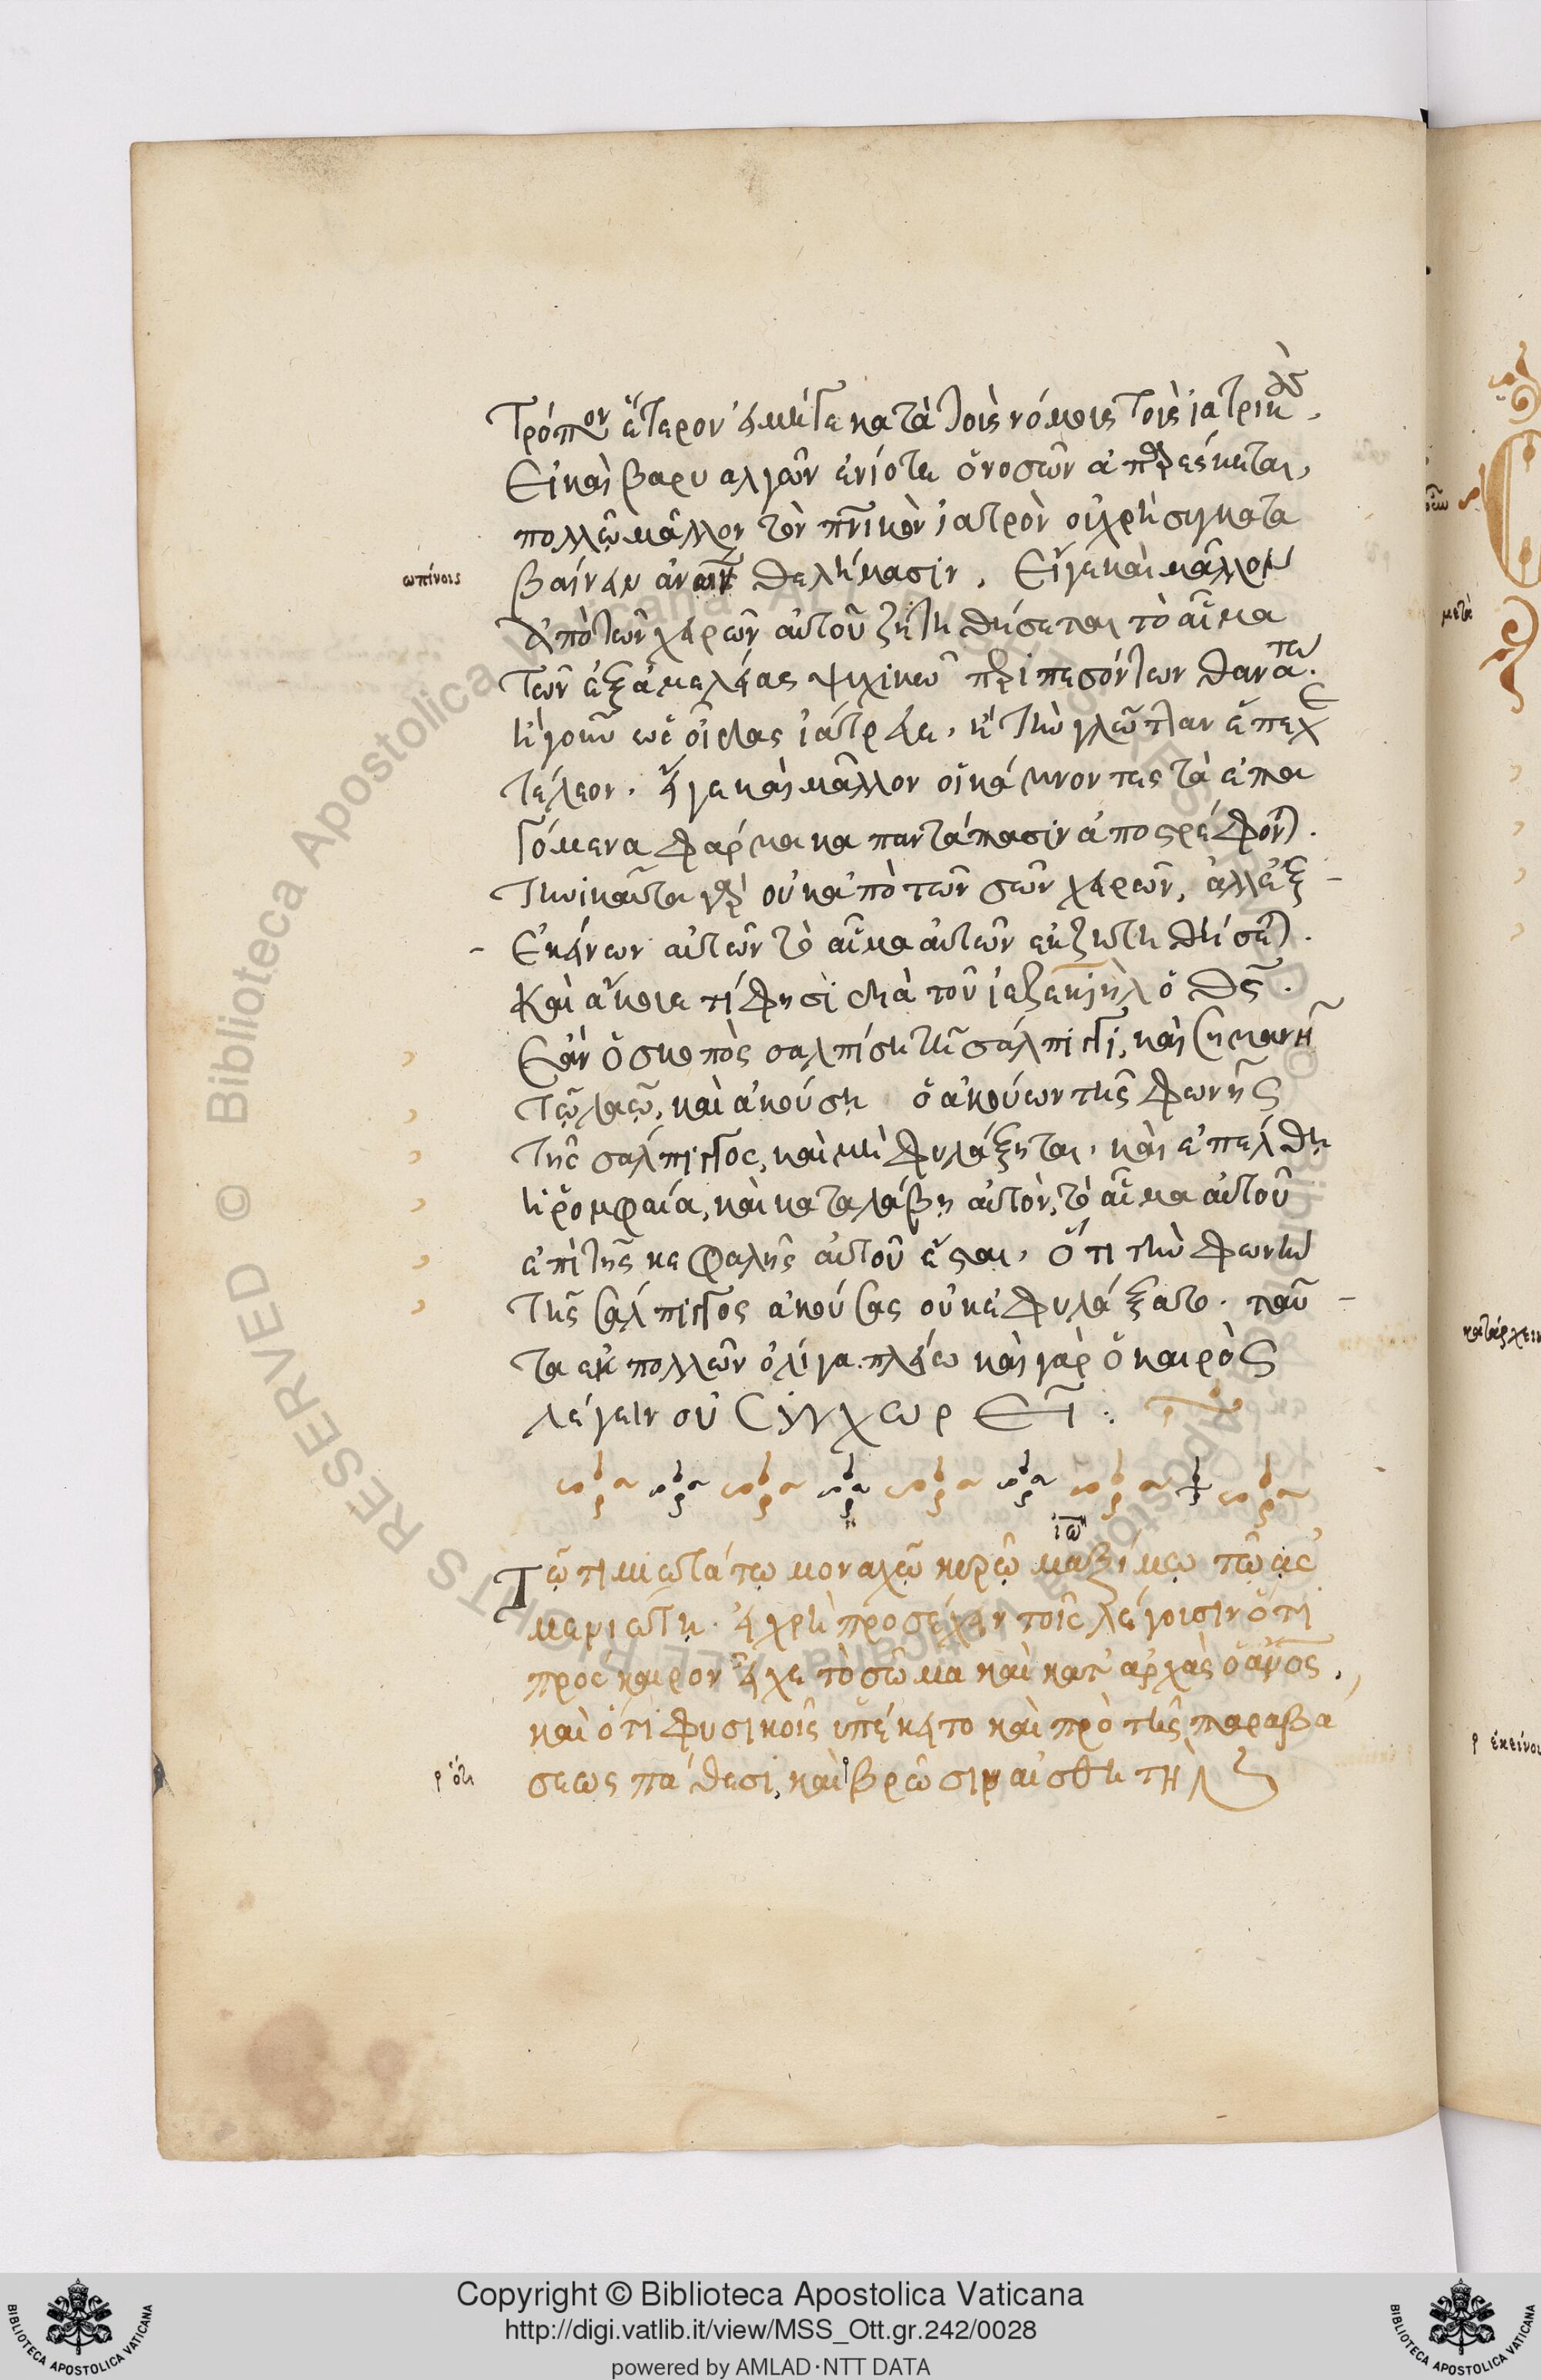 Τρόπον ἕτερον εἰ μήτε κατὰ τοὺς νόμους τοὺς ἰατρικοὺς.
Εἰ καὶ βαρυαλγῶν ἐνίοτε ὁ νοσῶν ἀπαρέσκεται,
πολλῷ μᾶλλον τὸν πνικὸν ἰατρὸν οὐ χρὴ συγκατα
ωπίνοις
βαίνειν θελήμασιν. Εἴγε καὶ μᾶλλον
ἀπὸ τῶν χειρῶν αὐτοῦ ζητηθήσεται τὸ αἷμα
τῶν ἐξ ἀμελείας ψυχικῶ περιπεσόντων θανάτω.
ἢ γοῦν ὡς οἶδας ἰάτρευε, ἢ τὴν γλῶτταν ἔπεχε
τέλεον. εἴγε καὶ μᾶλλον οἱ κάμνοντες τὰ ἐπα
γόμενα φάρμακα παντάπασιν ἀποστρέφονται.
Τηνικαῦτα γὰρ οὐκ ἀπὸ τῶν σῶν χειρῶν, ἀλλ' ἐξ
ἐκείνων αὐτῶν τὸ αἷμα αὐτῶν ἐκζητηθήσεται.
Καὶ ἄκουε τί φησὶ διὰ τοῦ ἰεζεκιὴλ ὁ θς.
Ἐὰν ὁ σκοπὸς σαλπίση τῆ σάλπιγγι, καὶ σημανῆ
τῷ λαῷ, καὶ ἀκούση ὁ ἀκούων τῆς φωνῆς
τῆς σάλπιγγος, καὶ μὴ φυλάξηται, καὶ ἐπέλθη
ἡ ῥομφαία, καὶ καταλάβη αὐτὸν, τὸ αἷμα αὐτοῦ
ἐπὶ τῆς κεφαλῆς αὐτοῦ ἔσται, Ὅτι τὴν φωνὴν
τῆς σάλπιγγος ἀκούσας οὐκ ἐφυλάξατο. ταῦ
τα ἐκ πολλῶν ὀλίγα. πλείω καὶ γὰρ ὁ καιρὸς
λέγειν οὐ συγχωρεῖ:
ιω
Τῷ τιμιωτάτῳ μοναχῷ κυρῷ μαξίμῳ τῷ ἀσ
μενιώτη. εἰ χρὴ προσέχειν τοῖς λέγουσιν ὅτι
πρόσκαιρον εἶχε τὸ σῶμα καὶ κατ' ἀρχὰς ὁ ἄνος,
καὶ ὅτι φυσικοῖς ὑπέκειτο καὶ πρὸ τῆς παραβά
ρ ὅτι
σεως πάθεσι, καὶ βρῶσιν αἰσθητὴν
μετὰ
κατάρχειν
ρ ἐκείνου
Copyright © Biblioteca Apostolica Vaticana
http://digi.vatlib.it/view/MSS_Ott.gr.242/0028
powered by AMLAD·NTT DATA
BIBLIOTECA APOSTOLICA VATICANA
BIBLIOTECA APOSTOLICA VATICANA
Biblioteca Apostolica Vaticana ALL RIGHTS RESERVED ©